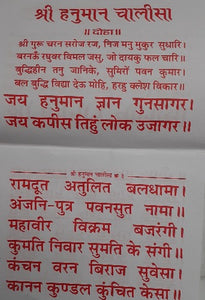 श्री हनुमान चालीसा
|| दोहा ||
श्री गुरू चरन सरोज रज, निज मनु मुकुर सुधारि।
बरनऊँ रघुबर बिमल जसु, जो दायकु फल चारि।
बुद्धिहीन तनु जानिके, सुमिरौं पवन कुमार।
बल बुद्धि विद्या देऊ मोहि, हरहु क्लेश विकार।।
जय हनुमान ज्ञान गुनसागर।
जय कपीस तिहुं लोक उजागर।।
श्री हनुमान चालीसा
रामदूत अतुलित बलधामा।
अंजनि-पुत्र पवनसुत नामा।।
महावीर विक्रम बजरंगी।
कुमति निवार सुमति के संगी।।
कंचन वरन बिराज सुवेसा।
कानन कुण्डल कुंचित केसा।।